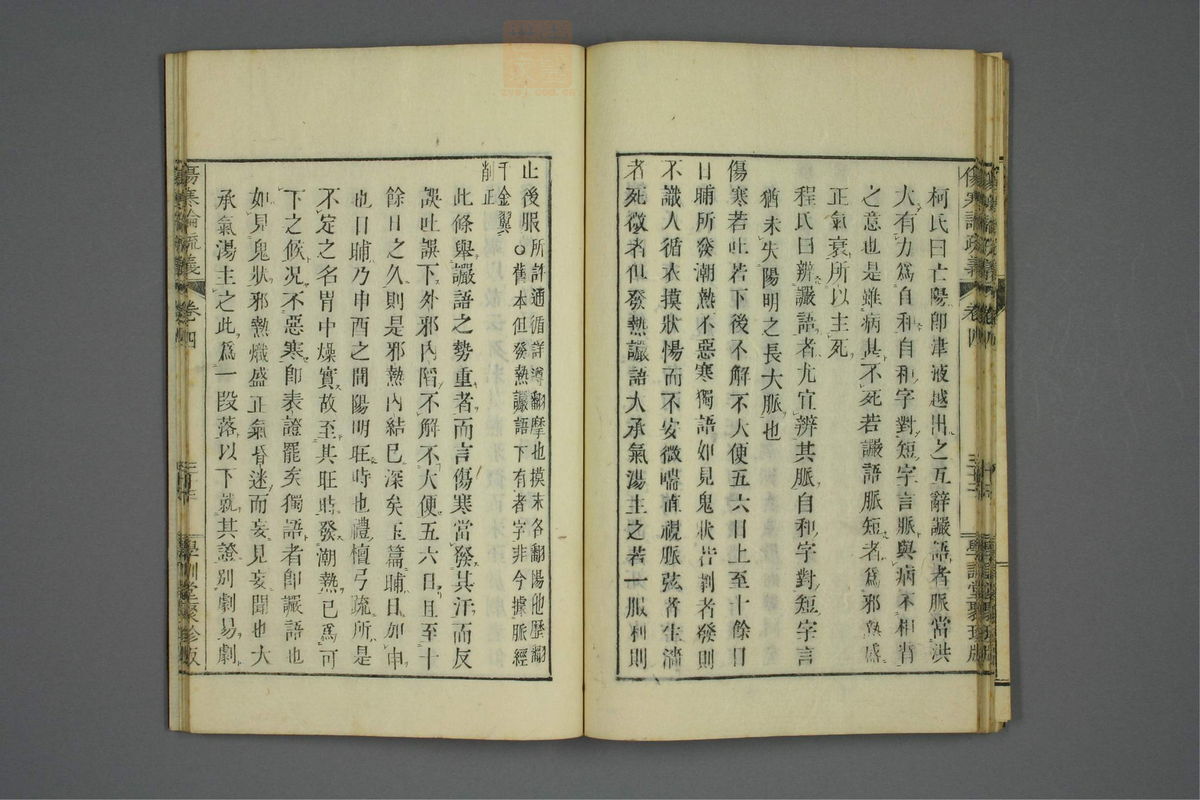 柯氏曰亡陽卽津液越出之互辭讝語者脈當洪
大有力爲自和自和字對短字言脈與病不相背
之意也是雖病甚不死若讝語脈短者爲邪熱盛
正氣衰所以主死
程氏曰辨讝語者尤宜辨其脈自和字對短字言
猶未失陽明之長大脈也
傷寒若吐若下後不解不大便五六日上至十餘日
日晡所發潮熱不惡寒獨語如見鬼狀若劇者發則
不識人循衣摸牀惕而不安微喘直視脈弦者生濇
者死微者但發熱讝語大承氣湯主之若一服利則
止後服
所許通循詳溥翻摩也摸末各翻陽他歷翻
千金翼○舊本但發熱讝語下有者字非今據脈經
削正
此條舉讝語之勢重者而言傷寒當發其汗而反
誤吐誤下外邪內陷不解不大便五六日且至十
餘日之久則是邪熱內結已深矣玉篇晡日加申
也日晡乃申酉之間陽明旺時也禮檀弓疏所是
不定之名胃中燥實故至其旺時發潮熱已爲可
下之候况不惡寒卽表證罷矣獨語者卽讝語也
如見鬼狀邪熱熾盛正氣昏迷而妄見妄聞也大
承氣湯主之此爲一段落以下就其證別劇易劇
傷寒論疏義
卷四
學訓堂聚珍版